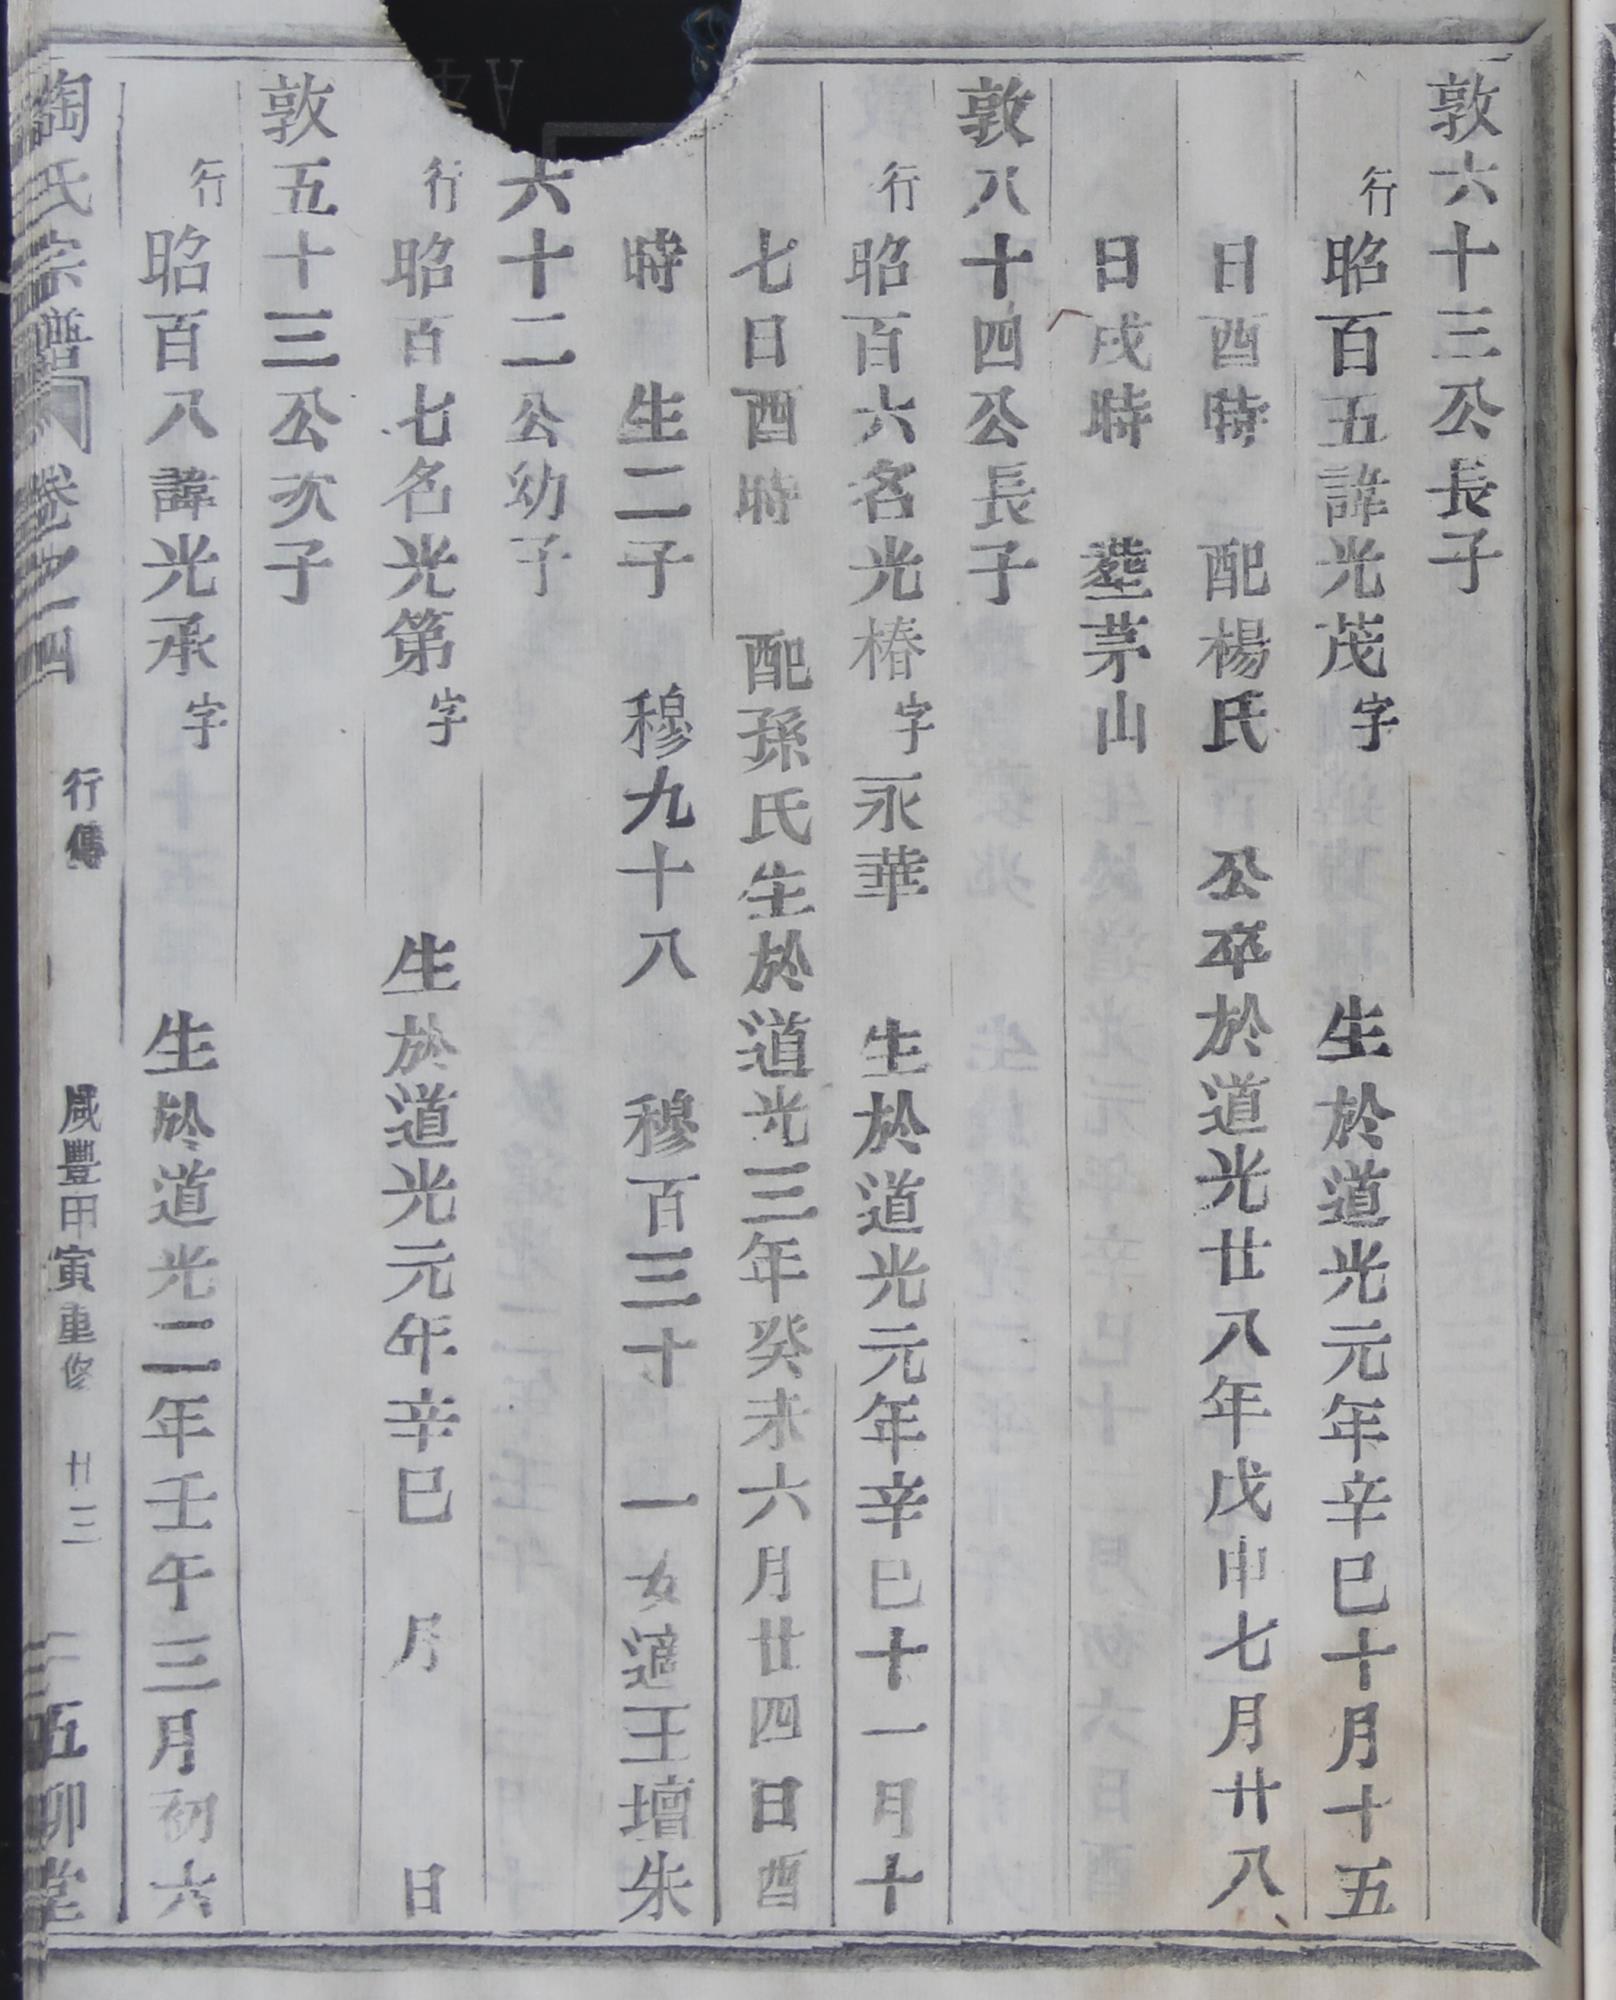 敦六十三公長子
行昭百五諱光茂字 生於道光元年辛巳十月十五
日酉時 配楊氏 公卒於道光廿八年戊申七月廿八
日戌時 塟茅山
敦八十四公長子
行昭百六名光椿字永華 生於道光元年辛巳十一月十
七日酉時 配孫氏生於道光三年癸未六月廿四日酉
時 生二子 穆九十八 穆百三十 一女適王壇朱
六十二公幼子
行昭百七名光第字 生於道光元年辛巳 月 日
敦五十三公次子
行昭百八諱光承字 生於道光二年壬午三月初六
陶氏宗譜 卷之四 行傳 咸豐甲寅重修 廿三 五柳堂